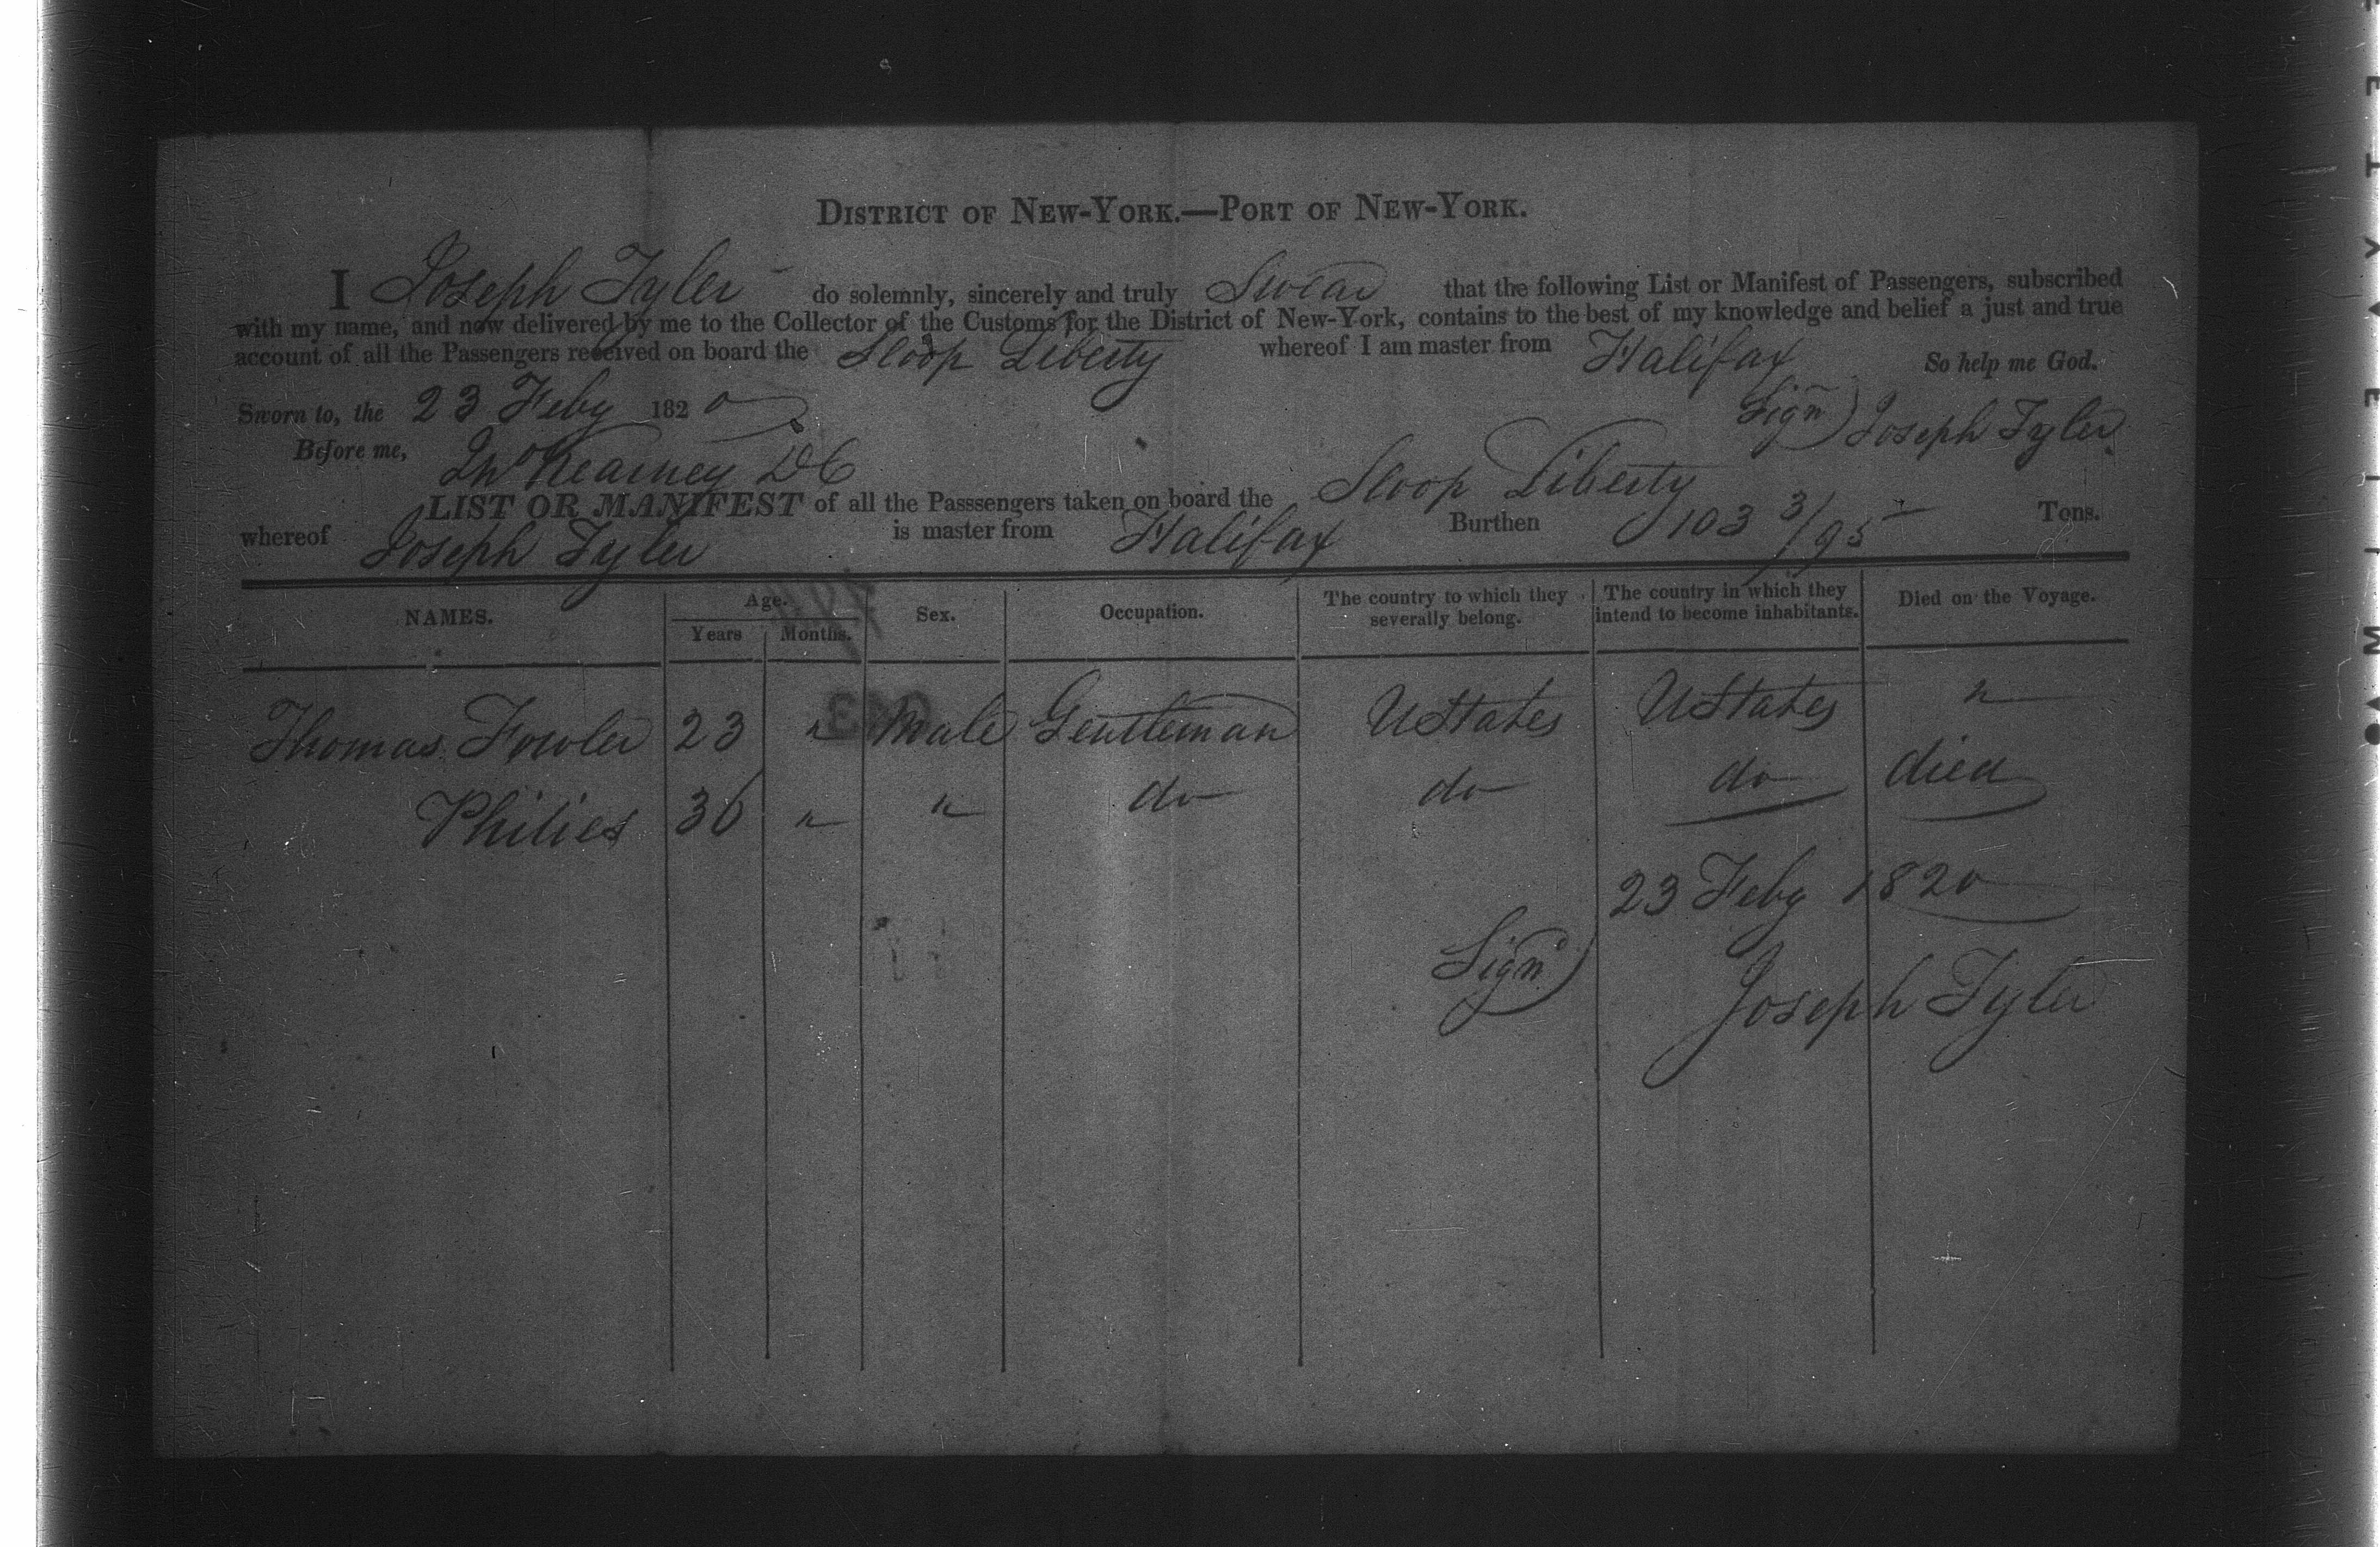 DISTRICT OF NEW-YORK.—PORT OF NEW-YORK.
I Joseph Tyler do solemnly, sincerely and truly Swear that the following List or Manifest of Passengers, subscribed
with my name, and now delivered by me to the Collector of the Customs for the District of New-York, contains to the best of my knowledge and belief a just and true
account of all the Passengers received on board the Sloop Liberty whereof I am master from Halifax So help me God.
Sworn to, the 23 Feby 1820 Sign) Joseph Tyler
Before me, Kearney DC
LIST OR MANIFEST of all the Passsengers taken on board the Sloop Liberty
whereof Joseph Tyler is master from Halifax Burthen 103 3/95 Tons.
NAMES. Age. Years Months. Sex. Occupation. The country to which they severally belong. The country in which they intend to become inhabitants. Died on the Voyage.
Thomas Fowler 23 " Male Gentleman UStates UStates "
Philies 36 " " do do do died
23 Feby 1820
Sign) Joseph Tyler